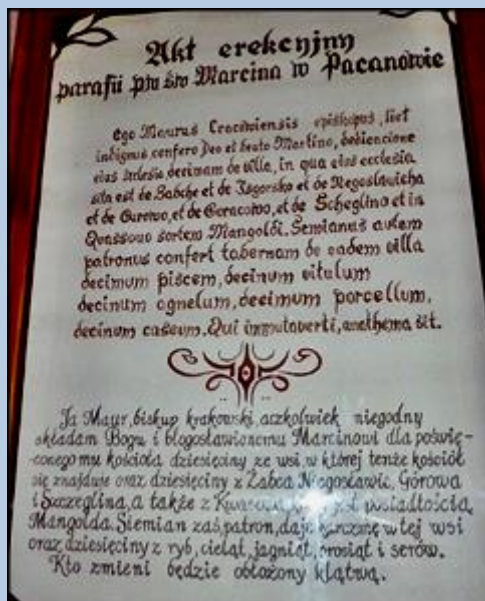 Akt erekcyjny
parafii pw św Marcina w Pacanowie
Ego Maurus Crocowiensis episkopus, licet
indignus confero Deo et beato Martino, dedicacione
eius decimam de villa, in qua eius ecclesia
sita est de Sabche et de Zagorsko et de Negoslawicha
et de Gurowo, et de Goracowo, et de Scheglino et in
Quassowo sortem Mangoldi. Semianus autem
patronus confert tabernam de eadem villa
decimum piscem, decinum vitulum
decinum agnelum, decimum porcellum,
decinum caseum. Qui inmutaverti, anathema sit.
Ja Maur, biskup krakowski, aczkolwiek niegodny
składam Bogu i błogosławionemu Marcinowi dla poświę-
conego mu kościoła dziesięciny ze wsi, w której tenże kościół
się znajduje oraz dziesięciny z Żabca Niegosławic, Górowa
i Szczeglina, a także z posiadłością
Mangolda. Siemian zaś, patron, daje karczmę w tej wsi
oraz dziesięciny z ryb, cieląt, jagniąt, prosiąt i serów.
Kto zmieni będzie obłożony klątwą.